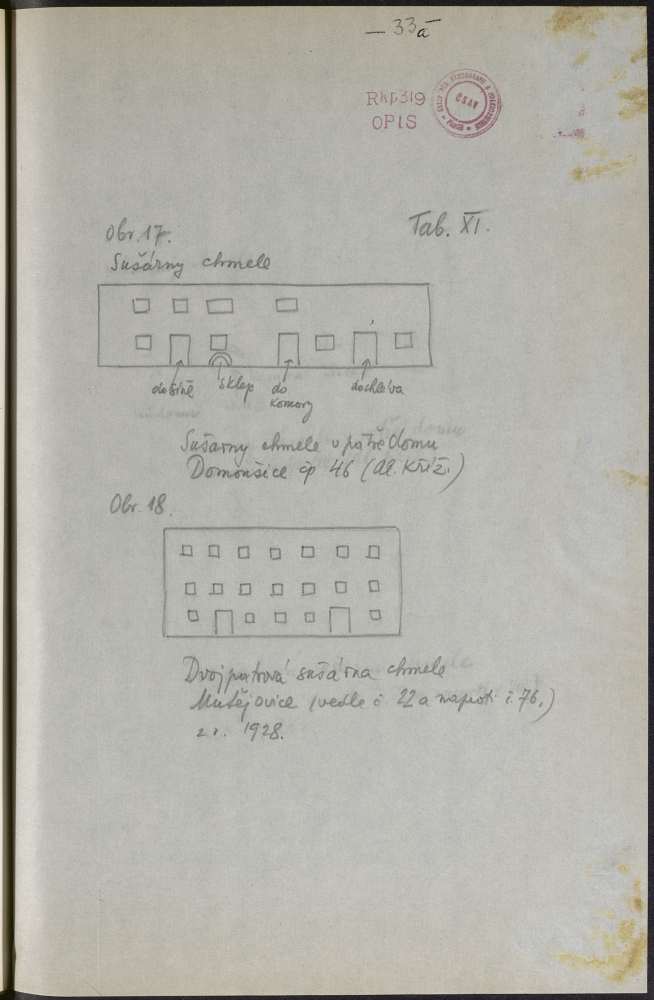 — 33a
Rkp 319
OPIS
ČSAV
PRAHA
Tab. XI.
Obr. 17.
Sušárny chmele
do síně
sklep
do
komory
do chléva
Sušárny chmele v patře domu
Domoušice čp 46 (Al. Kříž.)
Obr. 18.
Dvojpatrová sušárna chmele
Mutějovice (vedle č 22 a naproti č. 76.)
z r. 1928.